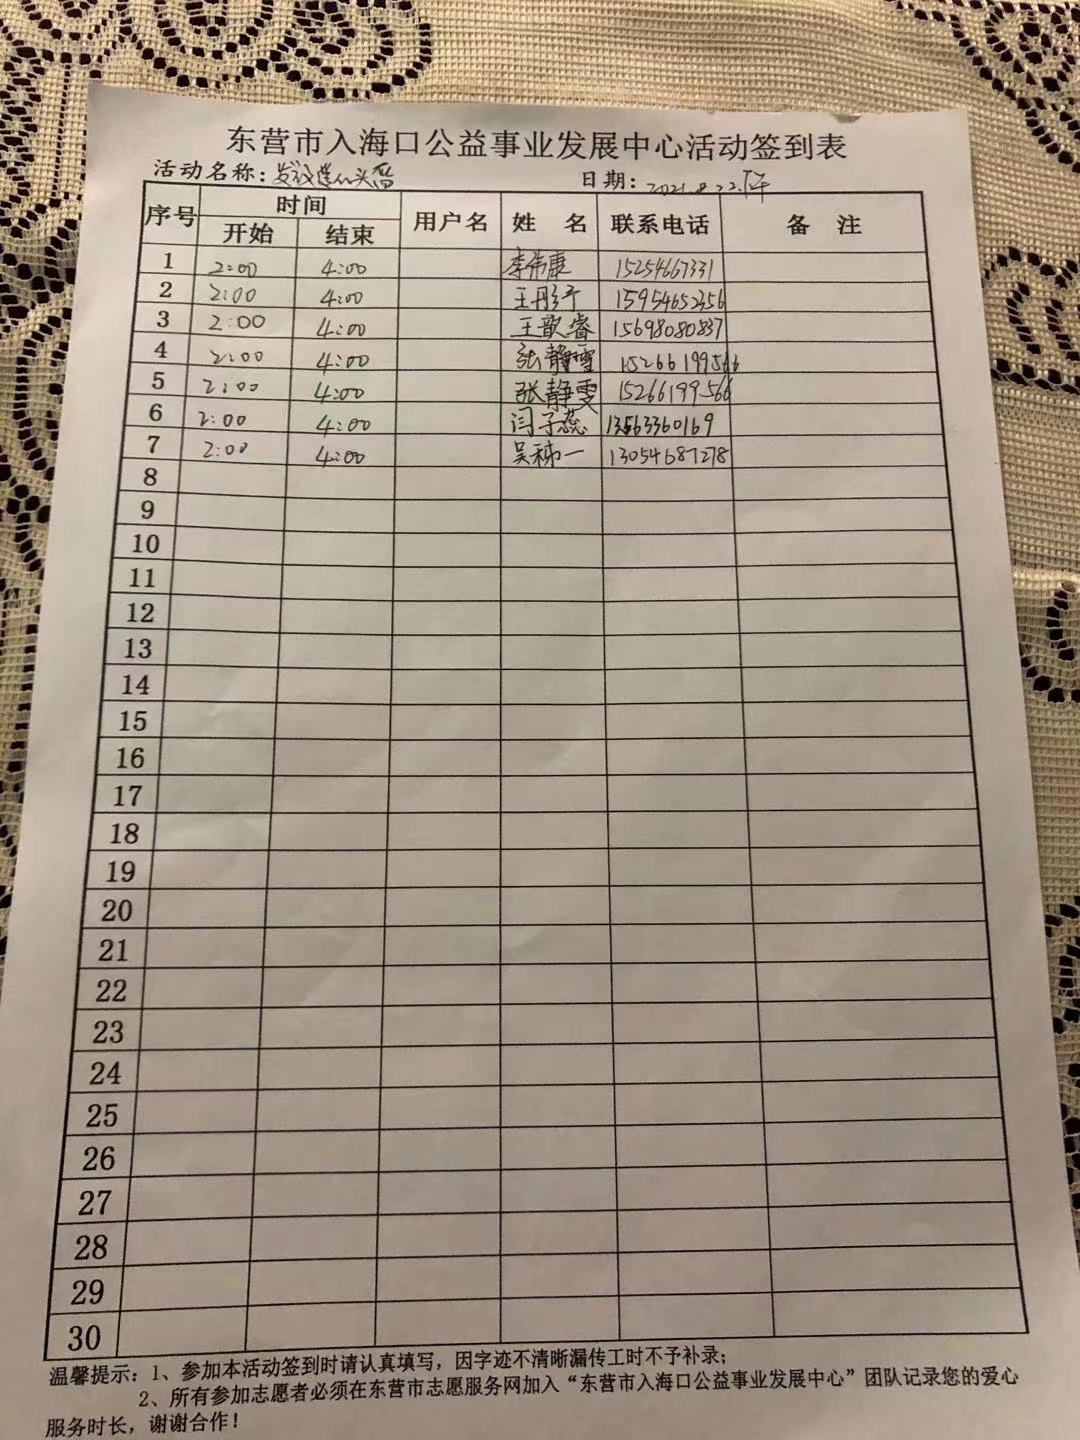 东营市入海口公益事业发展中心活动签到表
活动名称: 日期: 2021.8.22.下午
序号 时间 用户名 姓 名 联系电话 备 注
开始 结束
1 2:00 4:00 李伟康 15254667331
2 2:00 4:00 王彤予 15954652356
3 2:00 4:00 王歆睿 15698080837
4 2:00 4:00 张静雪 15266199566
5 2:00 4:00 张静雯 15266199566
6 2:00 4:00 闫子蕊 13563360169
7 2:00 4:00 吴秭一 13054687278
8
9
10
11
12
13
14
15
16
17
18
19
20
21
22
23
24
25
26
27
28
29
30
温馨提示：1、参加本活动签到时请认真填写，因字迹不清晰漏传工时不予补录；
2、所有参加志愿者必须在东营市志愿服务网加入“东营市入海口公益事业发展中心”团队记录您的爱心
服务时长，谢谢合作！